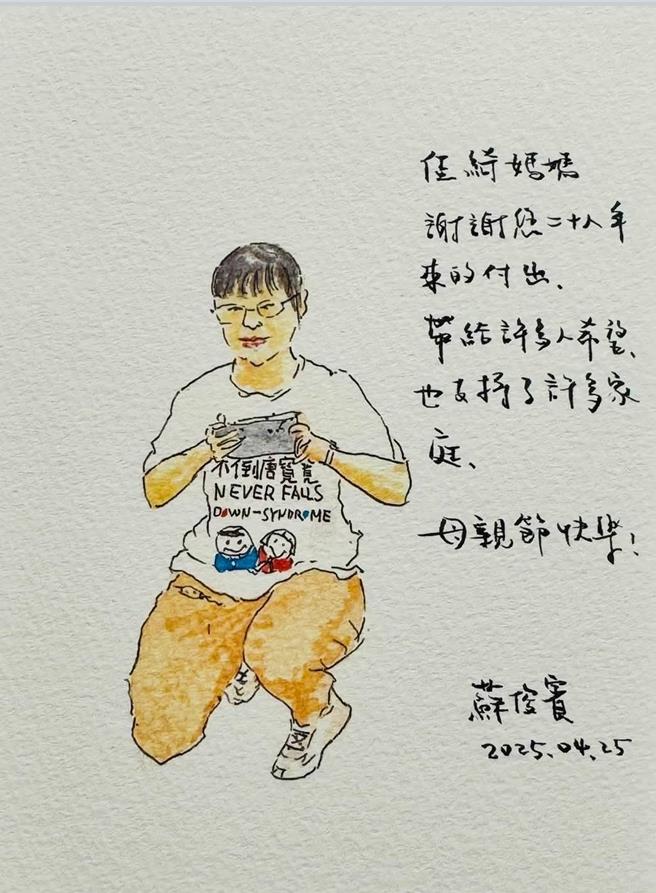 佳綺媽媽
謝謝您二十八年
來的付出、
帶給許多人希望、
也支持了許多家
庭、
母親節快樂！
不倒唐寶寶
NEVER FALLS
DOWN-SYNDROME
蘇俊賓
2025.04.25